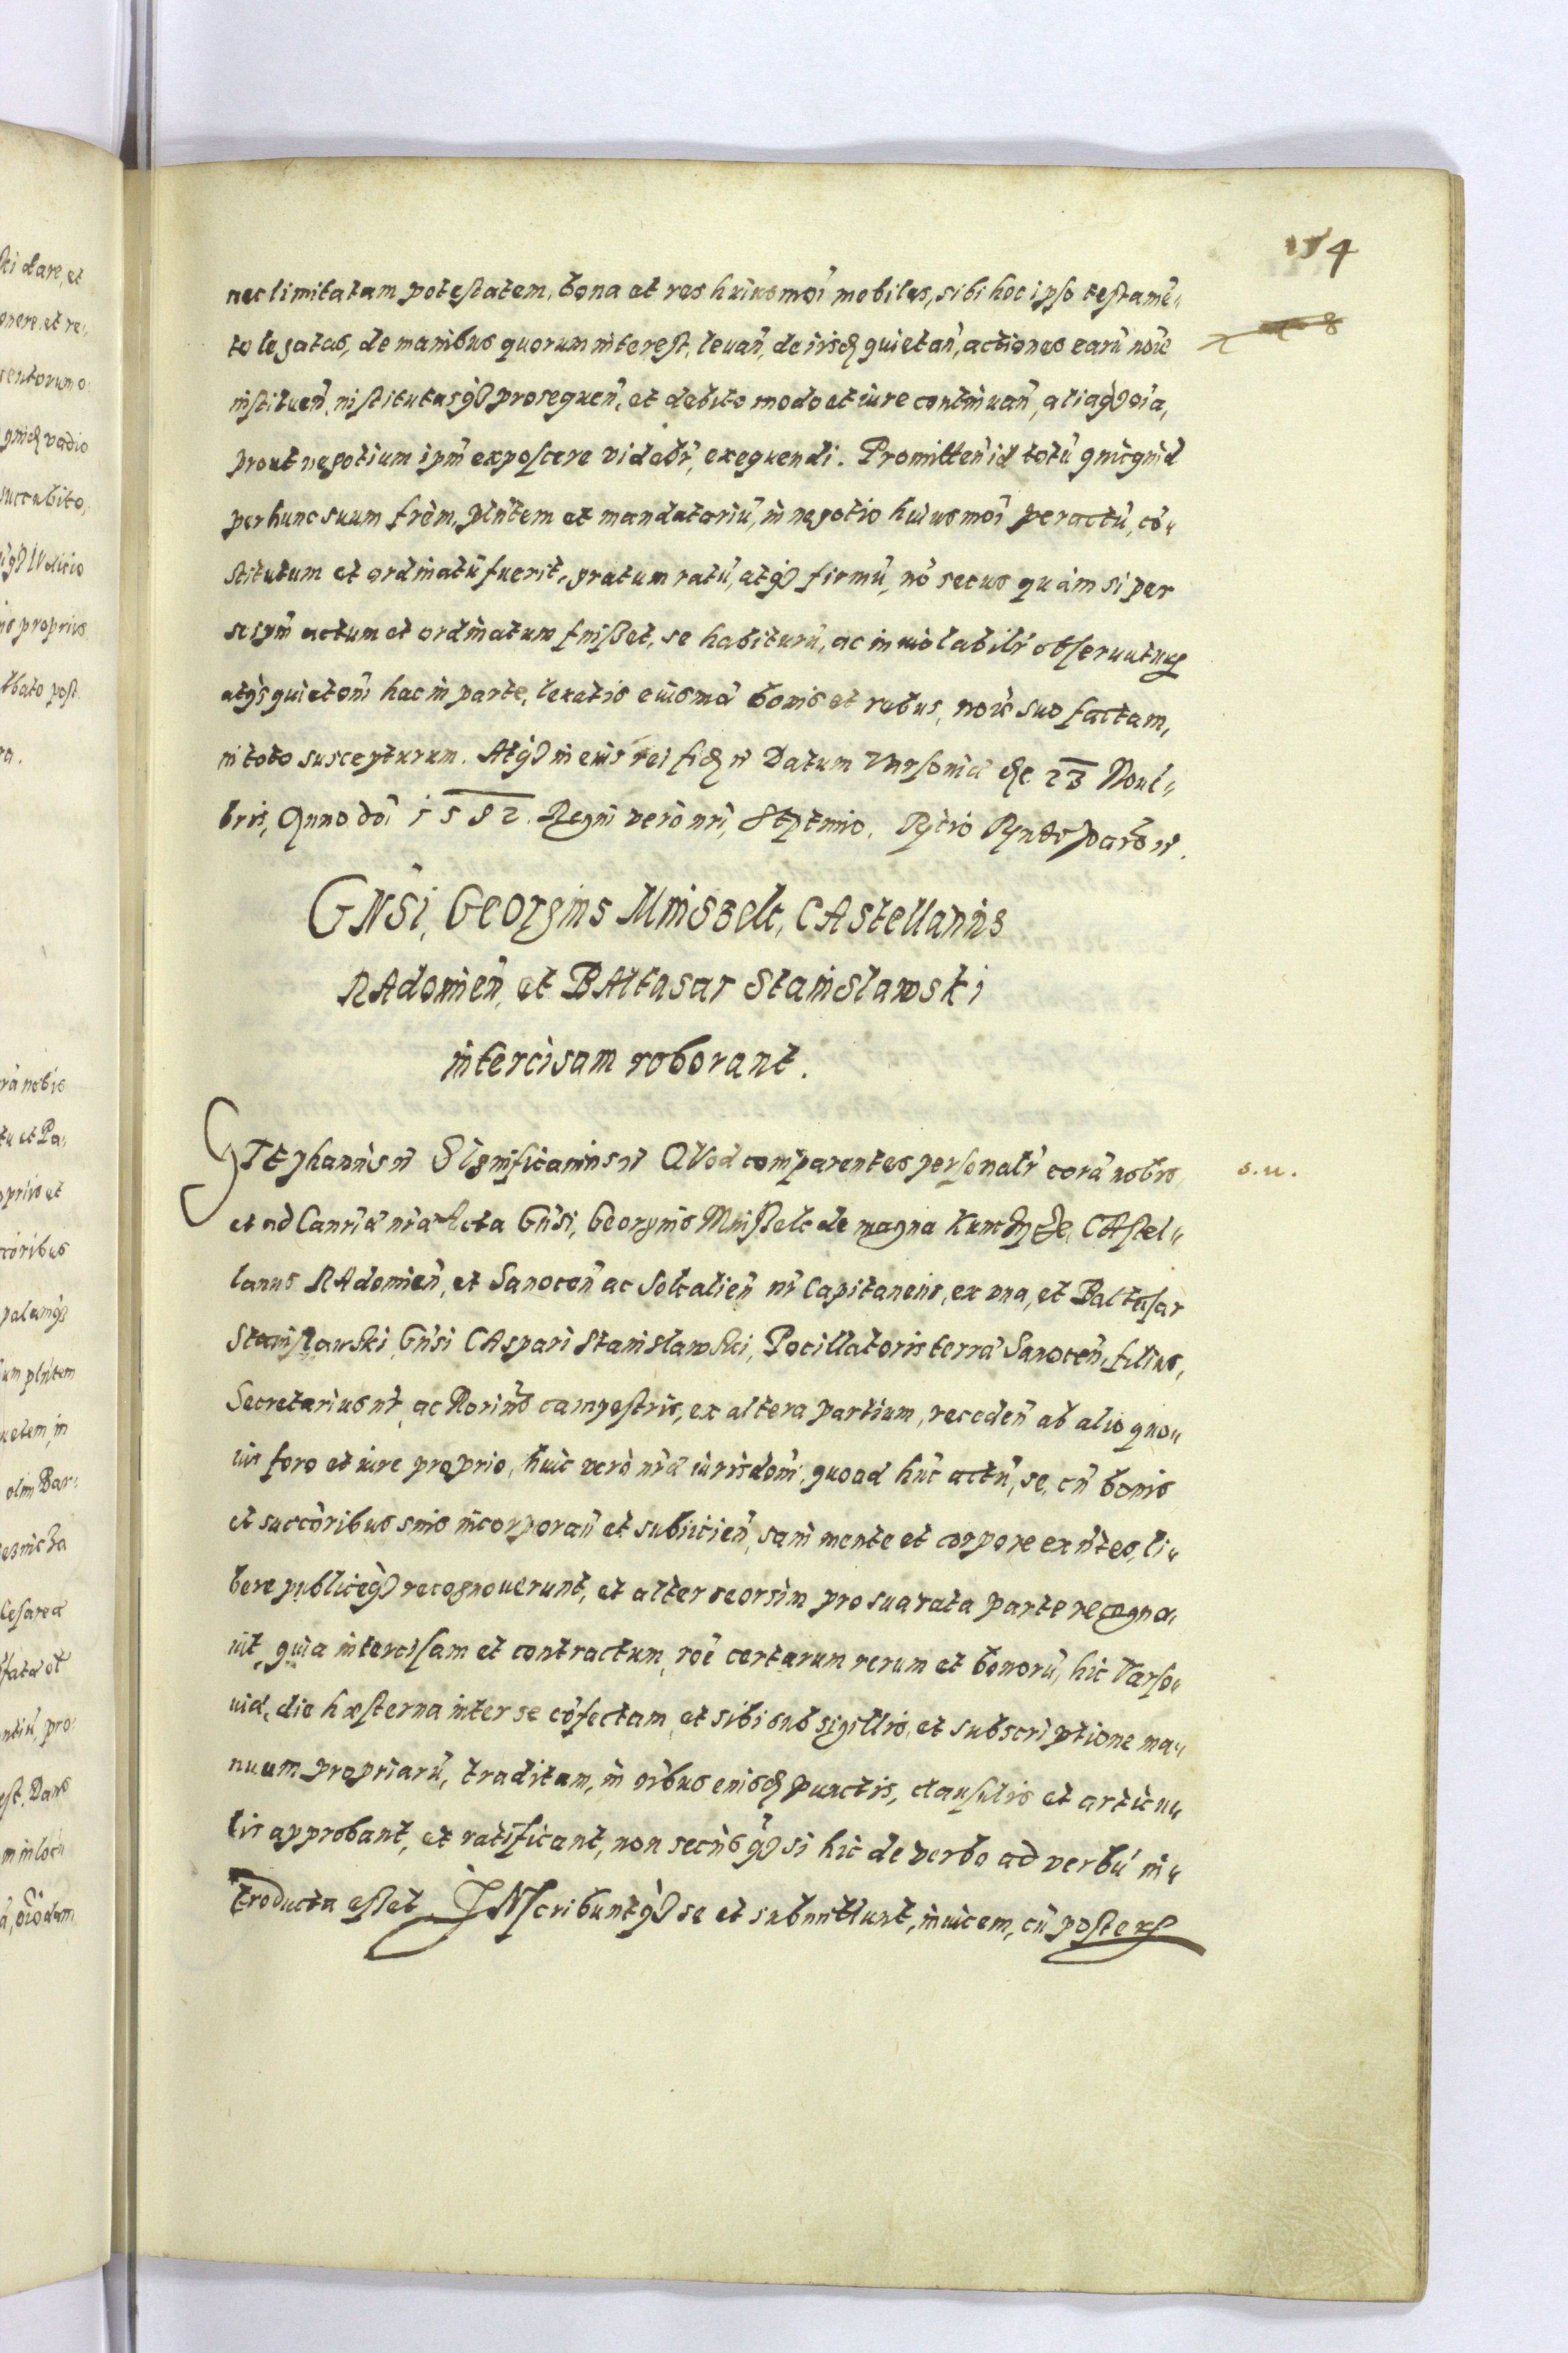 154
nec limitatam potestatem, bona et res huiusmoi mobiles, sibi hoc ipso testame͂„
to legatas, de manibus quorum interest, leuan̄, de iisdē quietan̄, actiones earū noīe
instituen̄, institutasq; prosequen̄, et debito modo et iure continuan̄, aliaq; oīa,
prout negotium ipm̄ exposcere videbr̄, exequendi. Promitten̄ id totū quicquid
per hunc suum frēm, pln̄tem et mandatariū, in negotio huiusmoi peractū, cō„
stitutum et ordinatū fuerit, gratum ratū, atq; firmū, nō secus quàm si per
se ipm̄ actum et ordinatum fuißet, se habiturū, ac inuiolabilr̄ obseruaturū
atq; quietōnī hac in parte, leuatis eiusmōi bonis et rebus, noīe suo factam,
in toto suscepturum. Atq; in eius rei fidē etc Datum Varsouiæ die 23 Noue„
bris, Anno dōi 1582. Regni verò nrī, Septimo.
GNSi, Georgius Mniszek, CAstellanus
RAdomien̄, et BAltasar Stanislawski
intercisam roborant.
STephanus etc Significamus etc QVod comparentes personalr̄ corā nobis
s. u.
et ad Canr̄iæ nr̄æ Acta Gn̄si, Georgius Mnißek de magna Kunczycze, CAstel„
lanus RAdomien̄, et Sanocen̄ ac Sokalien̄ nr̄ Capitaneus, ex vna, et Baltasar
Stanislawski, Gn̄si CAspari Stanislawski, Pocillatoris terræ Sanocen̄, filius,
Secretarius nr̄, ac Notarius campestris, ex altera partium, receden̄ ab alio quo„
uis foro et iure proprio, huic verò nr̄æ iurisdōni, quoad hūc actū, se, cū bonis
et succōribus suis incorporan̄ et subiicien̄, sani mente et corpore exn̄tes, li„
bere publiceq; recognouerunt, et alter seorsim pro sua rata parte recogno„
uit, quia intercisam et contractum, roē certarum rerum et bonorū, hic Varso„
uiæ, die hæsterna inter se cōfectam, et sibi sub sigillis, et subscriptione ma„
nuum propriarū, traditam, in oībus eiusdē punctis, clausulis et articu„
lis approbant, et ratificant, non secùs q̄; si hic de verbo ad verbū in„
troducta esset. INscribuntq; se et submittunt, inuicem, cū posteris